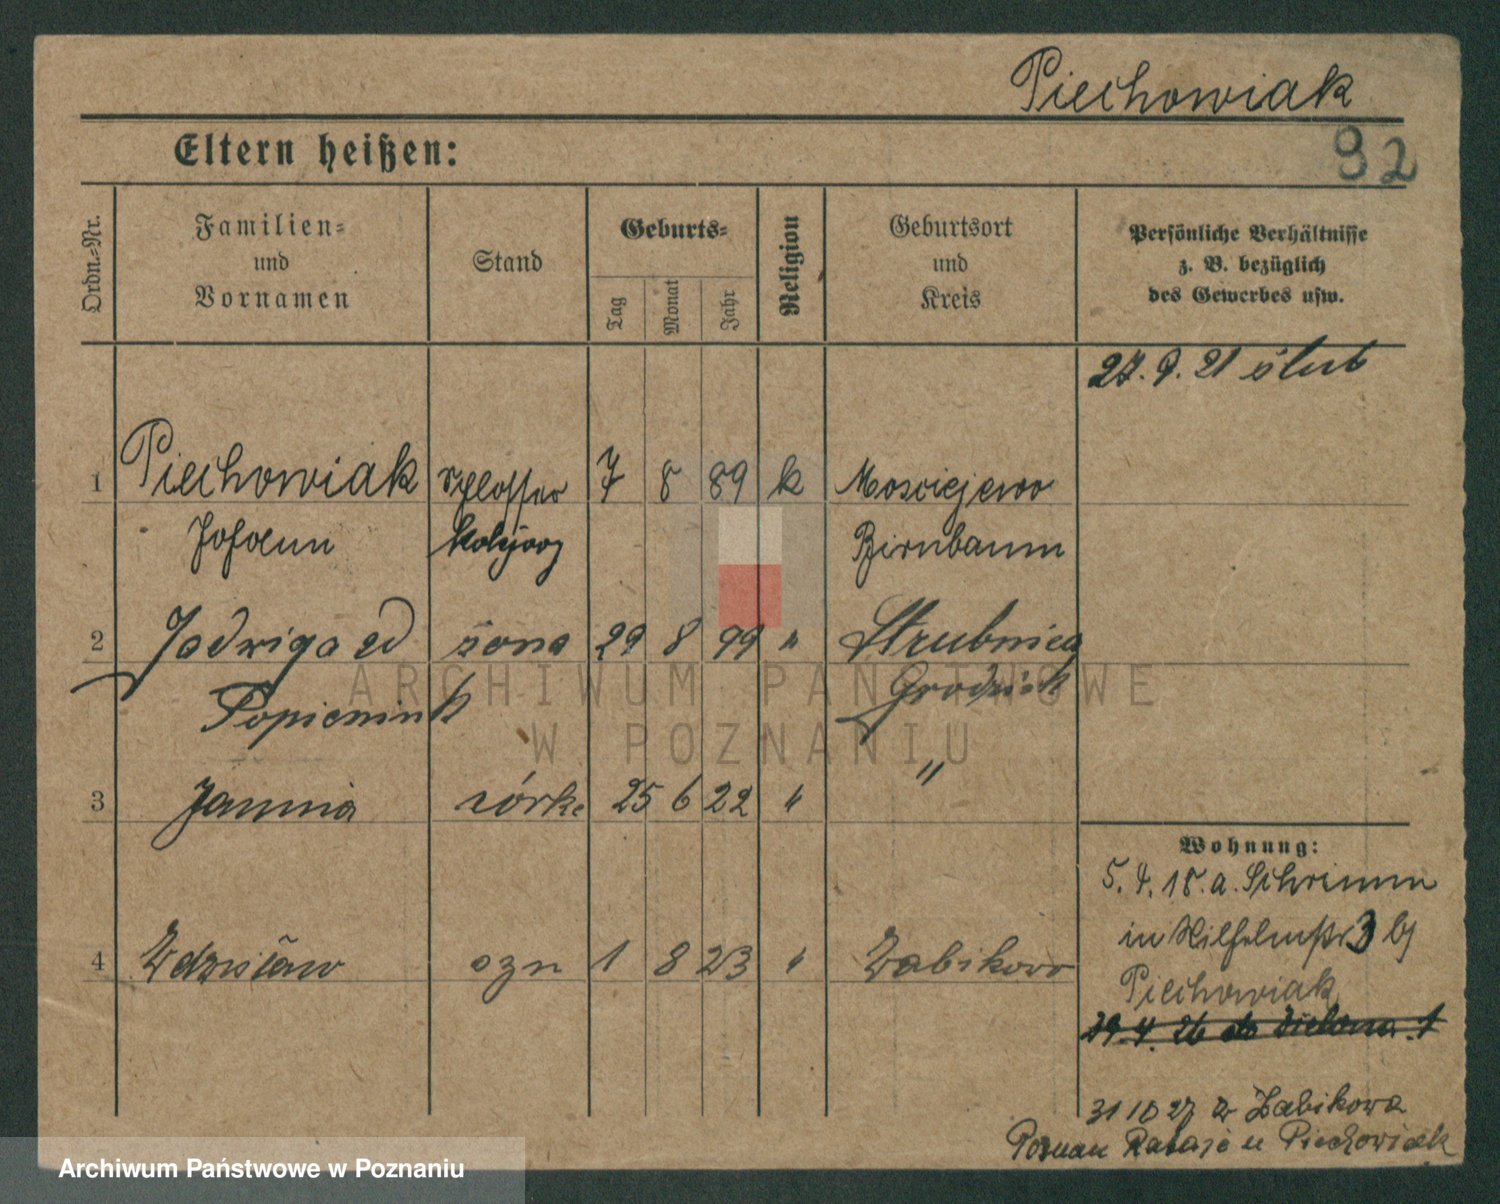 Piechowiak
92
Eltern heißen:
Ordn.-Nr.
Familien=
und
Vornamen
Stand
Geburts=
Tag
Monat
Jahr
Religion
Geburtsort
und
Kreis
Persönliche Verhältnisse
z. B. bezüglich
des Gewerbes usw.
27. 9. 21 ślub
1 Piechowiak Schlosser 7 8 89 k Mosciejewo
Johann Birnbaum
2 Jadwiga żona 29 8 99 " Strubnica
Grodzisk
3 Janina córka 25 6 22 " "
Wohnung:
5. 4. 18. a. Schrimm
in Wilhelmstr 3 bj
4 Zdzisław syn 1 8 23 " Żabikowo
Piechowiak
29. 4. 26 do Zielona 1
31 10 27 z Żabikowa
Poznan Rataje u Piechowiak
ARCHIWUM PAŃSTWOWE
W POZNANIU
Archiwum Państwowe w Poznaniu